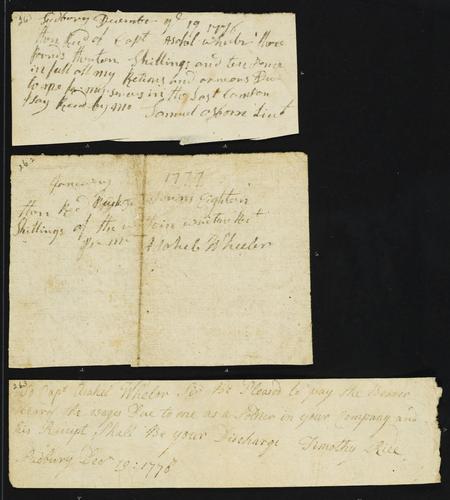 Sudbury December ye 19 1776
then Recd of Capt Asahel Wheler three
pounds thurteen Shillings and ten pence
in full all my Rations and arrears Due
to me in the Last Campan
I say Recd by me Samuel Osborn Lieut
262
January 1777
then Recd Eighteen
Shillings of the within
Per me Asahel Wheeler
263
To Capt Asahel Wheler Sir Be Pleased to pay the Bearer
hereof the wages Due to me as a Soldier in your Company and
his Receipt Shall Be your Discharge Timothy Rice
Sudbury Decr 19: 1776